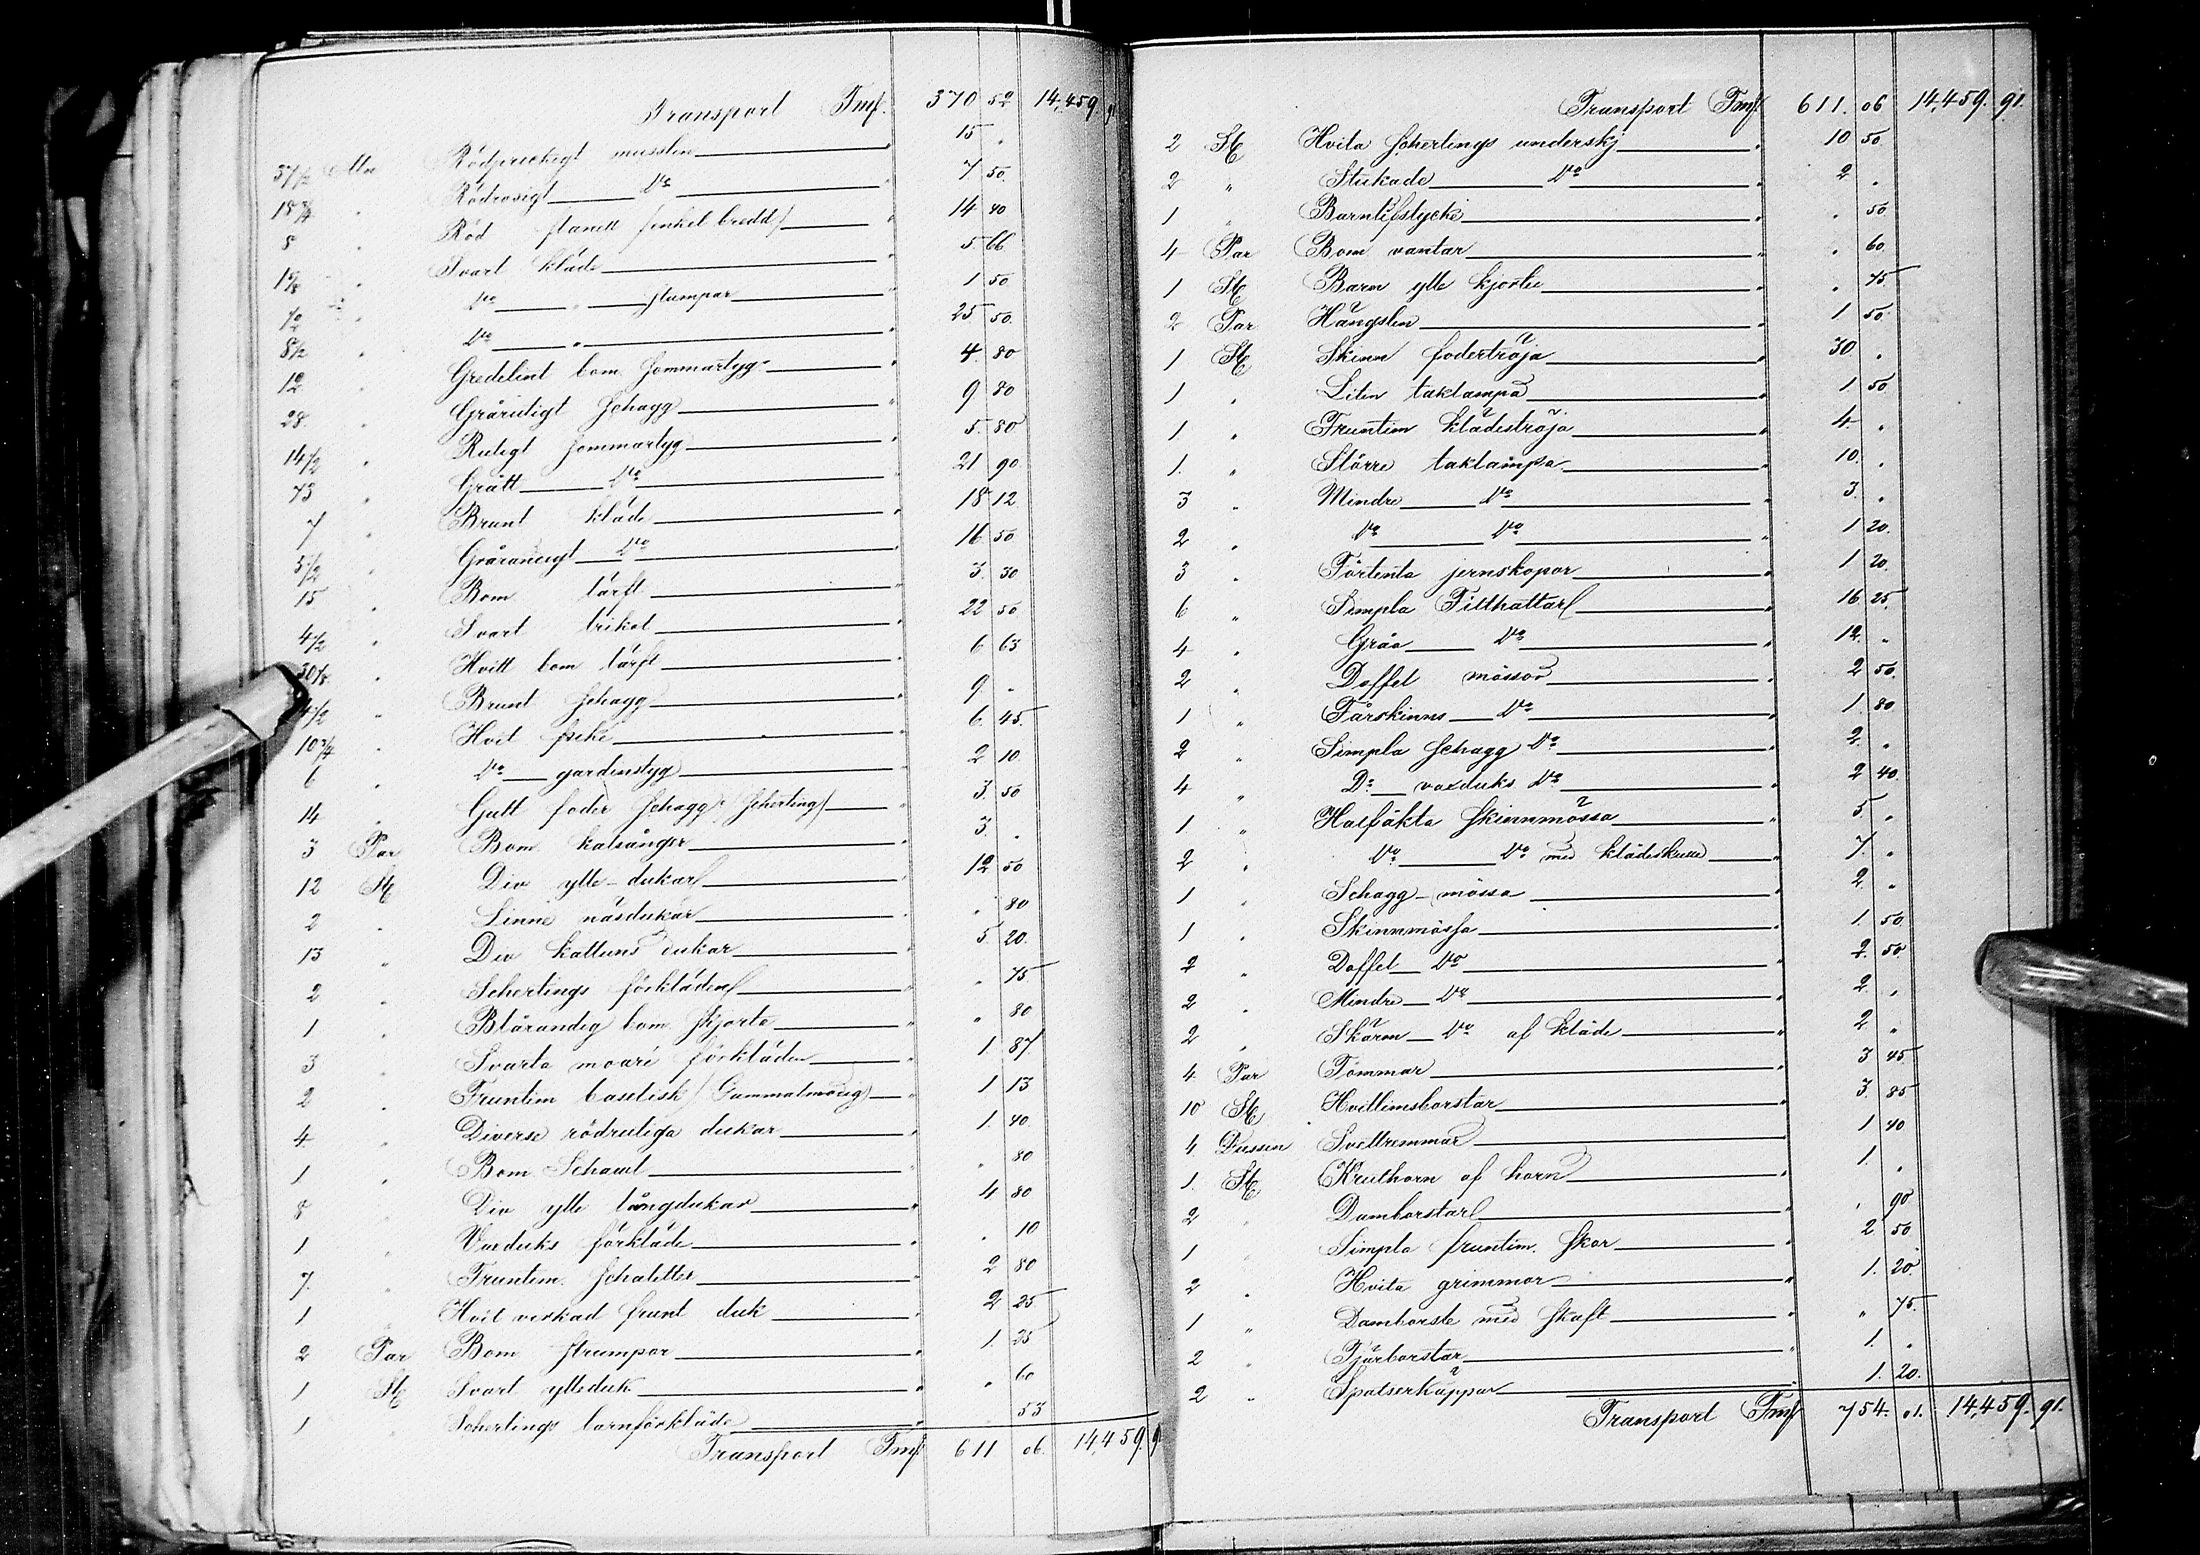 Transport Fmk. 370 52 14,459. 91
37 1/2 Aln Rödprickigt musslin 15 "
18 3/4 " Rödrosigt Do 7 50.
8 " Röd flanell (enkel bredd) 14 40
1 7/8 " Svart kläde 5 66
1/2 " Do " stumpar 1 50
8 1/2 " Do " 25 50.
12 " Gredelint bom. sommartyg 4. 80
28. " Grårutigt schagg 9 80
14 1/2 " Rutigt sommartyg 5. 80
73 " Grått Do 21 90.
7 " Brunt kläde 18 12
5 1/2 " Gråranligt Do 16 50
15 " Bom. lärft 3. 30
4 1/2 " Svart trikot 22 50
30 1/8 " Hvitt bom lärft 6 63
4 1/2 " Brunt schagg 9. "
10 3/4 " Hvit piké 6. 45.
6 " Do gardinstyg 2 10
14 " Gult foder schagg (schirting) 3. 50
3 Par Bom. kalsånger 3. "
12 St Div ylle-dukar 12 50
2 " Linne näsdukar " 80
13 " Div kattuns dukar 5 20.
2 " Schertings förkläden " 75
1 " Blårandig bom skjorta " 80
3 " Svarta moaré förkläden 1 87
2 " Fruntim (Gammalmodig) 1 13
4 " Diverse rödrutiga dukar 1. 40
1 " Bom Schawl " 80
8 " Div ylle långdukar 4 80
1 " Vaxduks förkläde " 10
7. " Fruntim. schaletter 2 80
1 " Hvit virkad frunt duk 2 25
2 Par Bom strumpor 1. 25
1 St Svart ylleduk " 60
1 " Schertings barnförkläde 53
Transport Fmk 611 06. 14,459. 9
Transport Fmk. 611. 06 14,459. 91.
2 St Hvita schertings underskj 10 50
2 " Stukade Do 2 "
1 " Barnlifstycke " 50
4 Par Bom vantar " 60.
1 St Barn ylle kjortel " 75
2 Par Hängslen 1 50
1 St Skinn fodertröja 30 "
1 " Liten taklampa 1 50
1 " Fruntim klädeströja 4. "
1. " Större taklampa 10. "
3 " Mindre Do 3. "
2 " Do Do 1 20.
3 " Förtenta jernskopor 1 20.
6 " Simpla Filthattar 16 25
4 " Gråa Do 12. "
2 " Doffel mössor 2 50.
1 " Fårskinns Do 1. 80
2 " Simpla schagg Do 2. "
4 " Do vaxduks Do 2 40
1 " Halfäkta skinnmössa 5 "
2 " Do Do med klädeskulle 7. "
1 " Schagg-mössa 2 "
1 " Skinnmössa 1. 50
2 " Doffel Do 2. 50
2 " Mindre Do 2. "
2 " Skärm Do af kläde 2 "
4 Par Tömmar 3 45
10 St Hvitlimsborstar 3. 85
4 Dussin Svettremmar 1 40
1. St Kruthorn af horn 1. "
2 " Damborstar " 90
1 " Simpla fruntim. skor 2 50
2 " Hvita grimmor 1. 20.
1 " Damborste med skaft " 75.
2 " Tjärborstar 1. "
2 " Spatserkäppar 1. 20.
Transport Fmk 754. 01. 14,459. 91.